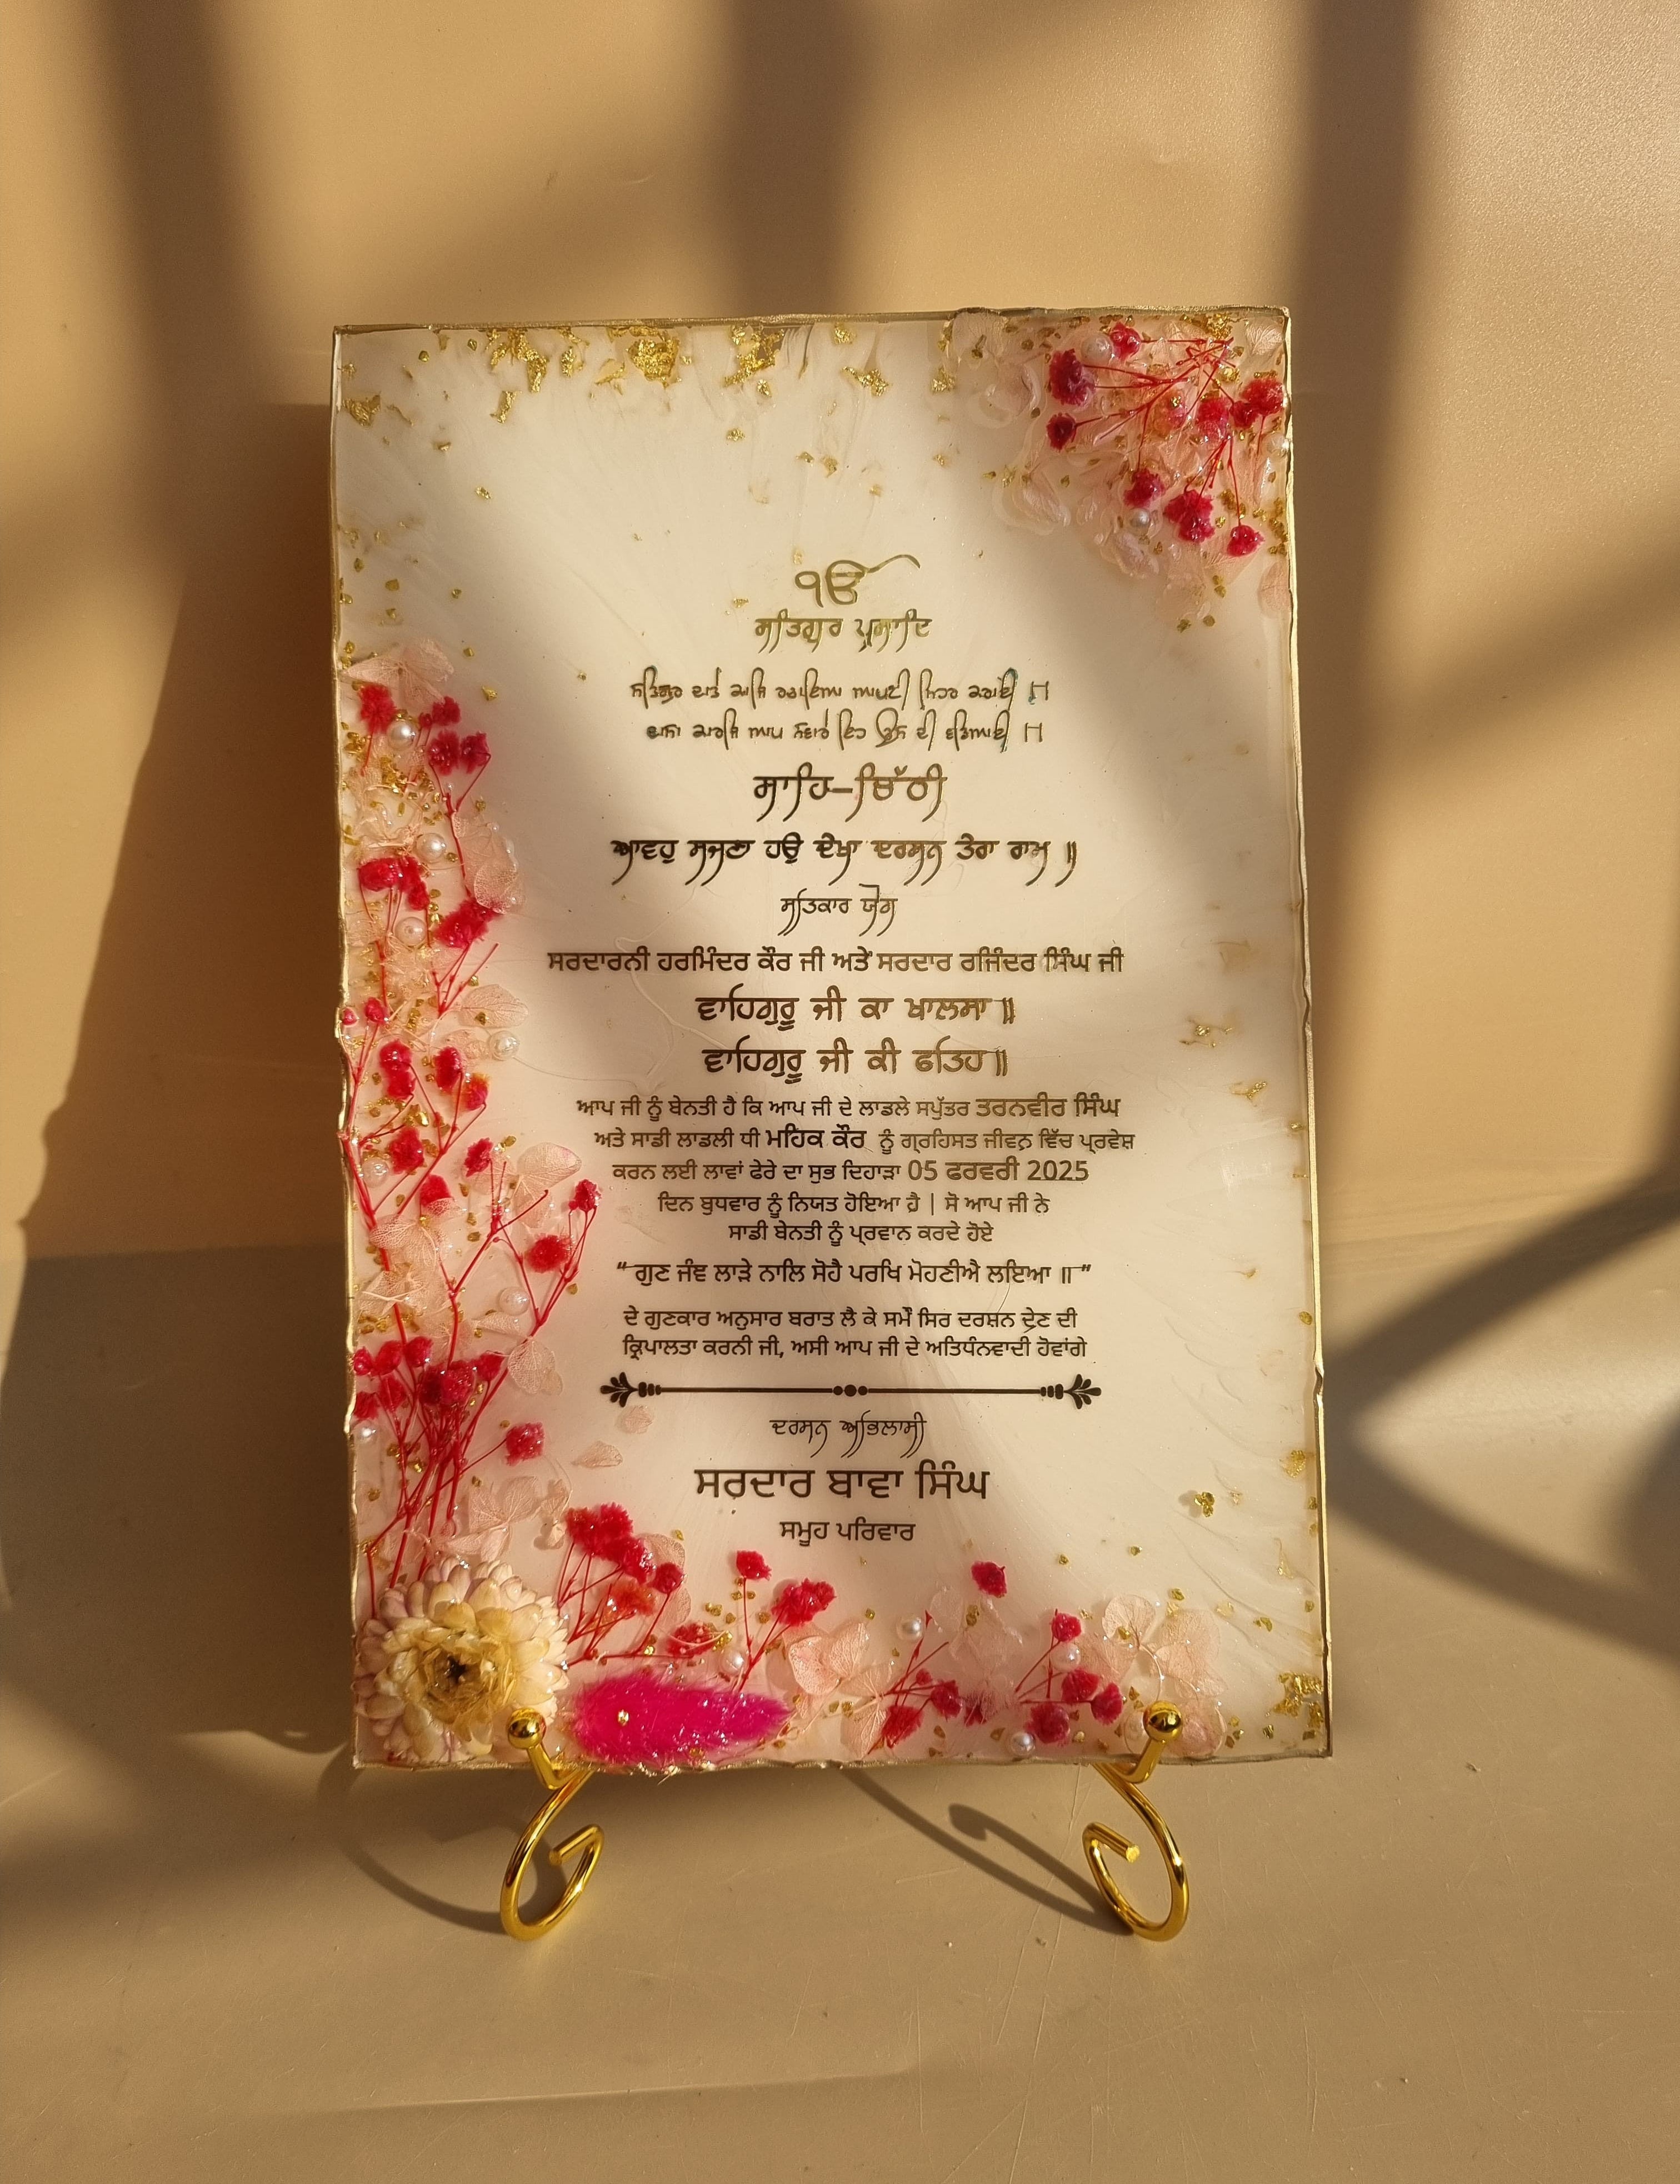 ੴ
ਸਤਿਗੁਰ ਪ੍ਰਸਾਦਿ
ਸਤਿਗੁਰ ਦਾਤੇ ਕਾਜ ਰਚਾਇਆ ਆਪਣੀ ਮਿਹਰ ਕਰਾਈ ॥
ਕਾਰਜ ਆਪ ਸਵਾਰੇ ਇਹ ਉਸ ਦੀ ਵਡਿਆਈ ॥
ਸਾਹਿ-ਚਿੱਠੀ
ਆਵਹੁ ਸਜਣਾ ਹਉ ਦੇਖਾ ਦਰਸਨ ਤੇਰਾ ਰਾਮ ॥
ਸਤਿਕਾਰ ਯੋਗ
ਸਰਦਾਰਨੀ ਹਰਮਿੰਦਰ ਕੌਰ ਜੀ ਅਤੇ ਸਰਦਾਰ ਰਜਿੰਦਰ ਸਿੰਘ ਜੀ
ਵਾਹਿਗੁਰੂ ਜੀ ਕਾ ਖਾਲਸਾ ॥
ਵਾਹਿਗੁਰੂ ਜੀ ਕੀ ਫਤਿਹ ॥
ਆਪ ਜੀ ਨੂੰ ਬੇਨਤੀ ਹੈ ਕਿ ਆਪ ਜੀ ਦੇ ਲਾਡਲੇ ਸਪੁੱਤਰ ਤਰਨਵੀਰ ਸਿੰਘ
ਅਤੇ ਸਾਡੀ ਲਾਡਲੀ ਧੀ ਮਹਿਕ ਕੌਰ ਨੂੰ ਗ੍ਰਹਿਸਤ ਜੀਵਨ ਵਿੱਚ ਪ੍ਰਵੇਸ਼
ਕਰਨ ਲਈ ਲਾਵਾਂ ਫੇਰੇ ਦਾ ਸੁਭ ਦਿਹਾੜਾ 05 ਫਰਵਰੀ 2025
ਦਿਨ ਬੁਧਵਾਰ ਨੂੰ ਨਿਯਤ ਹੋਇਆ ਹੈ | ਸੋ ਆਪ ਜੀ ਨੇ
ਸਾਡੀ ਬੇਨਤੀ ਨੂੰ ਪ੍ਰਵਾਨ ਕਰਦੇ ਹੋਏ
“ ਗੁਣ ਜੰਞ ਲਾੜੇ ਨਾਲਿ ਸੋਹੈ ਪਰਖਿ ਮੋਹਣੀਐ ਲਇਆ ॥ ”
ਦੇ ਗੁਣਕਾਰ ਅਨੁਸਾਰ ਬਰਾਤ ਲੈ ਕੇ ਸਮੇਂ ਸਿਰ ਦਰਸ਼ਨ ਦੇਣ ਦੀ
ਕ੍ਰਿਪਾਲਤਾ ਕਰਨੀ ਜੀ, ਅਸੀ ਆਪ ਜੀ ਦੇ ਅਤਿਧੰਨਵਾਦੀ ਹੋਵਾਂਗੇ
ਦਰਸਨ ਅਭਿਲਾਸੀ
ਸਰਦਾਰ ਬਾਵਾ ਸਿੰਘ
ਸਮੂਹ ਪਰਿਵਾਰ